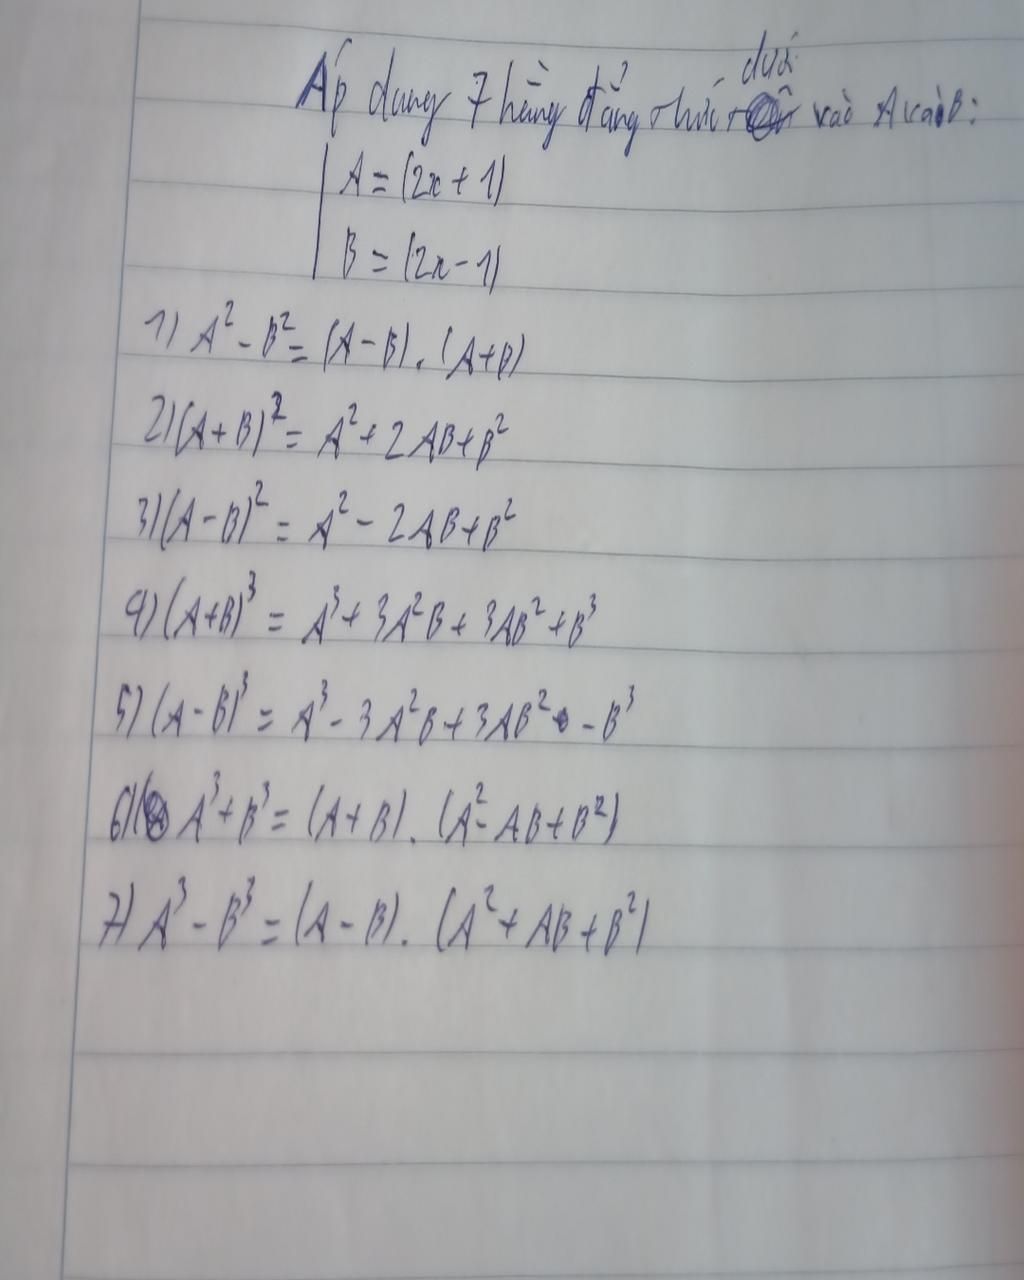 Áp dung 7 hằng đẳng thức dưới vào A và B:
A = (2x + 1)
B = (2x - 1)
1) A² - B² = (A - B) . (A + B)
2) (A + B)² = A² + 2AB + B²
3) (A - B)² = A² - 2AB + B²
4) (A + B)³ = A³ + 3A²B + 3AB² + B³
5) (A - B)³ = A³ - 3A²B + 3AB² - B³
6) A³ + B³ = (A + B) . (A² - AB + B²)
7) A³ - B³ = (A - B) . (A² + AB + B²)